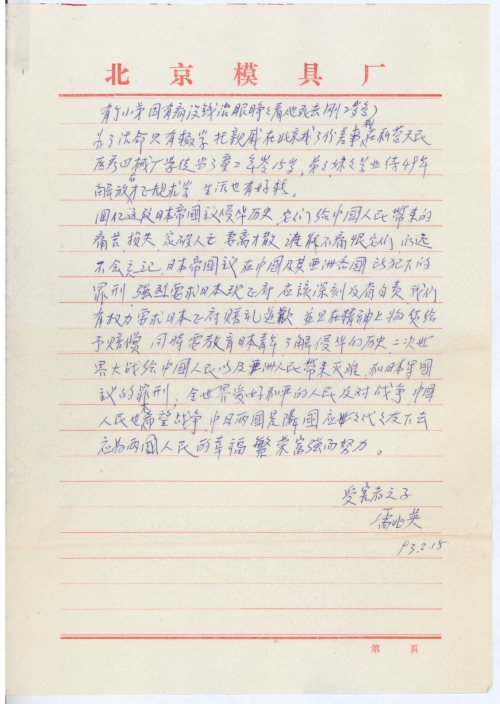 北京模具厂
有个小弟因有病没钱治眼睁々看他死去刚2岁多)
为了活命只有辍学托亲戚在北京找了份差事我在私营大民
医疗四械厂学徒当了童工年岁15岁,弟々妹々学业待49年
解放后才正规求学 生活也有好转。
回忆这段日本帝国议侵华历史,它们给中国人民带来的
痛苦损失,家破人亡 妻离子散 谁能不痛恨它们 永远
不会忘记,日本帝国议在中国及其亚洲各国 所犯下的
罪刑,强烈要求日本现政府应该深刻反省自责,我们
有权力要求日本政府赔礼道歉 并且在精神上物质给
予赔偿,同时需教育日本青年了解侵华的历史,二次世
界大战给中国人民以及亚洲人民带来灾难,和日本军国
议的罪刑,全世界爱好和平的人民反对战争,中国
人民也不希望战争,中日两国是隣国应世々代々友好下去
应为两国人民的幸福繁荣富强而努力。
受害者之子
雷兆英
93.2.15
第 页